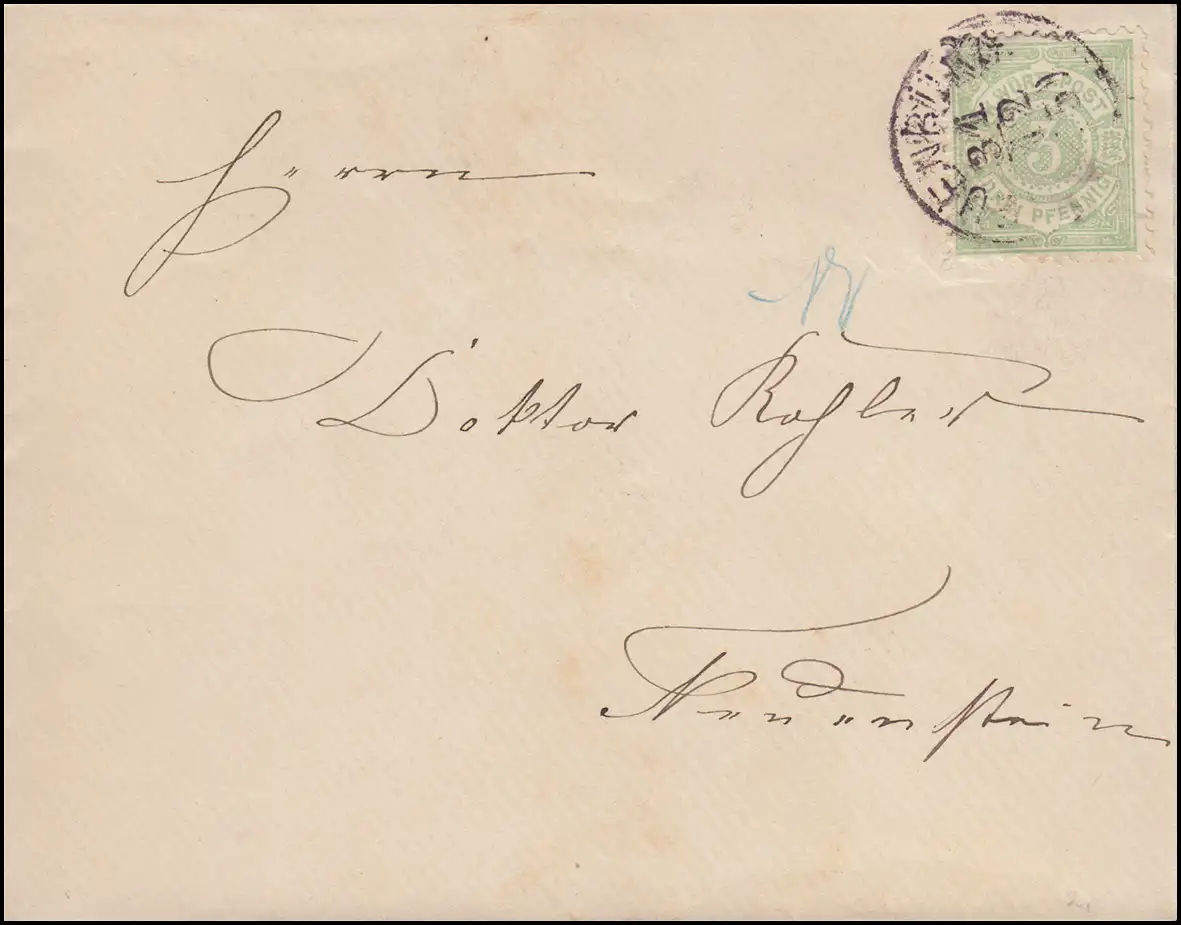 WÜRTT. POST
3
DREI PFENNIG
31
12
Herrn
Doktor Kohler
Neuenstein